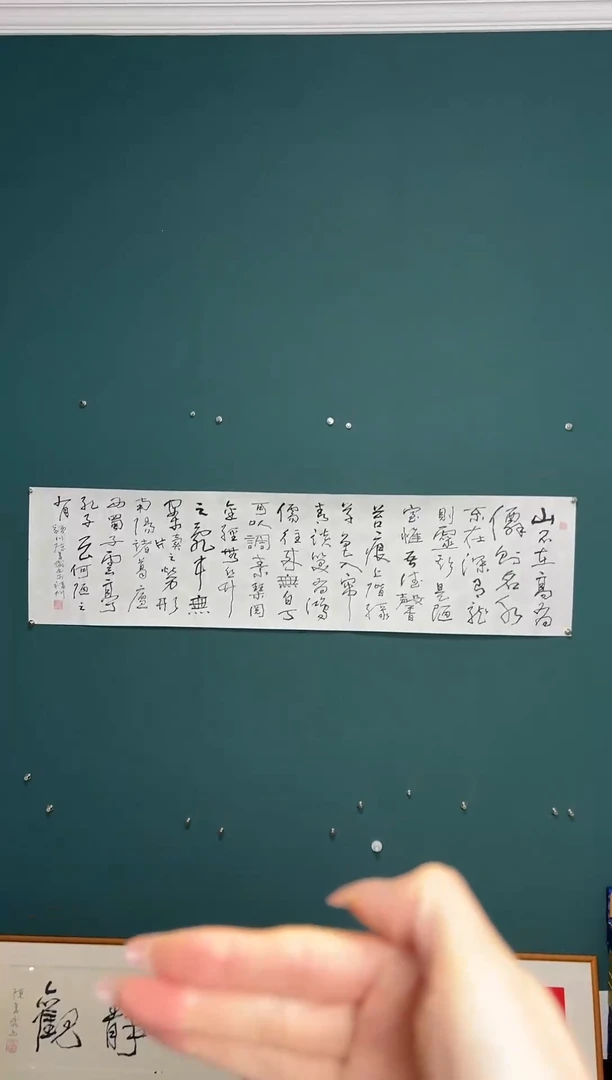 山不在高有
僊則名水
不在深有龍
則靈斯是陋
室惟吾德馨
苔痕上階綠
草色入簾
青談笑有鴻
儒往來無白丁
可以調素琴閱
金經無絲竹
之亂耳無
案牘之勞形
南陽諸葛廬
西蜀子雲亭
孔子云何陋之
有
靜觀